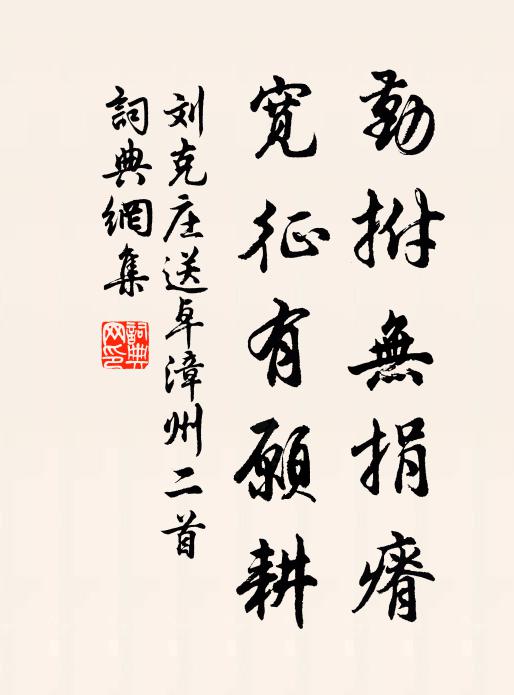 勤拊無捐瘠
寬征有願耕
刘克庄送卓漳州二首
詞典網集
詞典網印